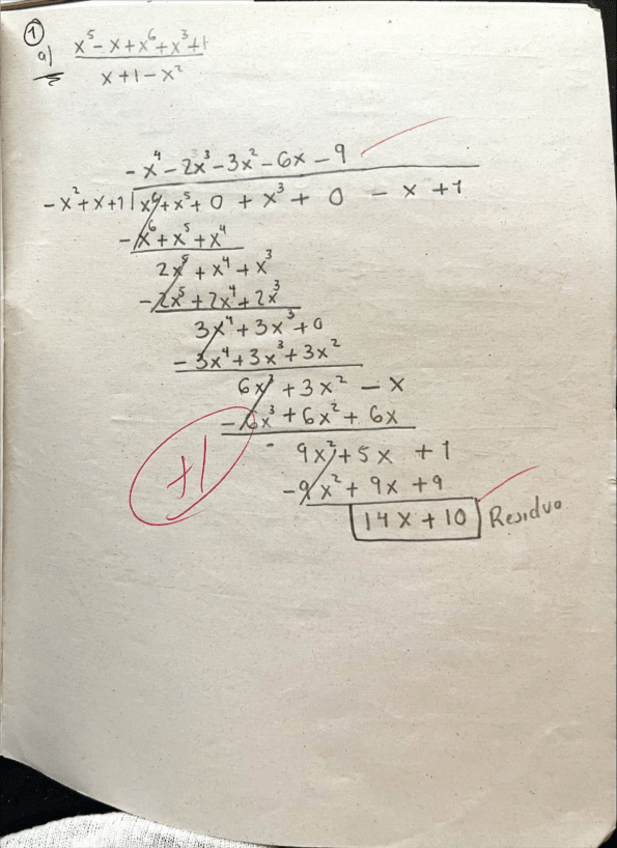 ① a) x⁵ - x + x⁶ + x³ + 1
x + 1 - x²
- x⁴ - 2x³ - 3x² - 6x - 9
- x² + x + 1 | x⁶ + x⁵ + 0 + x³ + 0 - x + 1
- x⁶ + x⁵ + x⁴
2x⁵ + x⁴ + x³
- 2x⁵ + 2x⁴ + 2x³
3x⁴ + 3x³ + 0
- 3x⁴ + 3x³ + 3x²
6x³ + 3x² - x
- 6x³ + 6x² + 6x
+1
- 9x² + 5x + 1
- 9x² + 9x + 9
14x + 10 Residuo